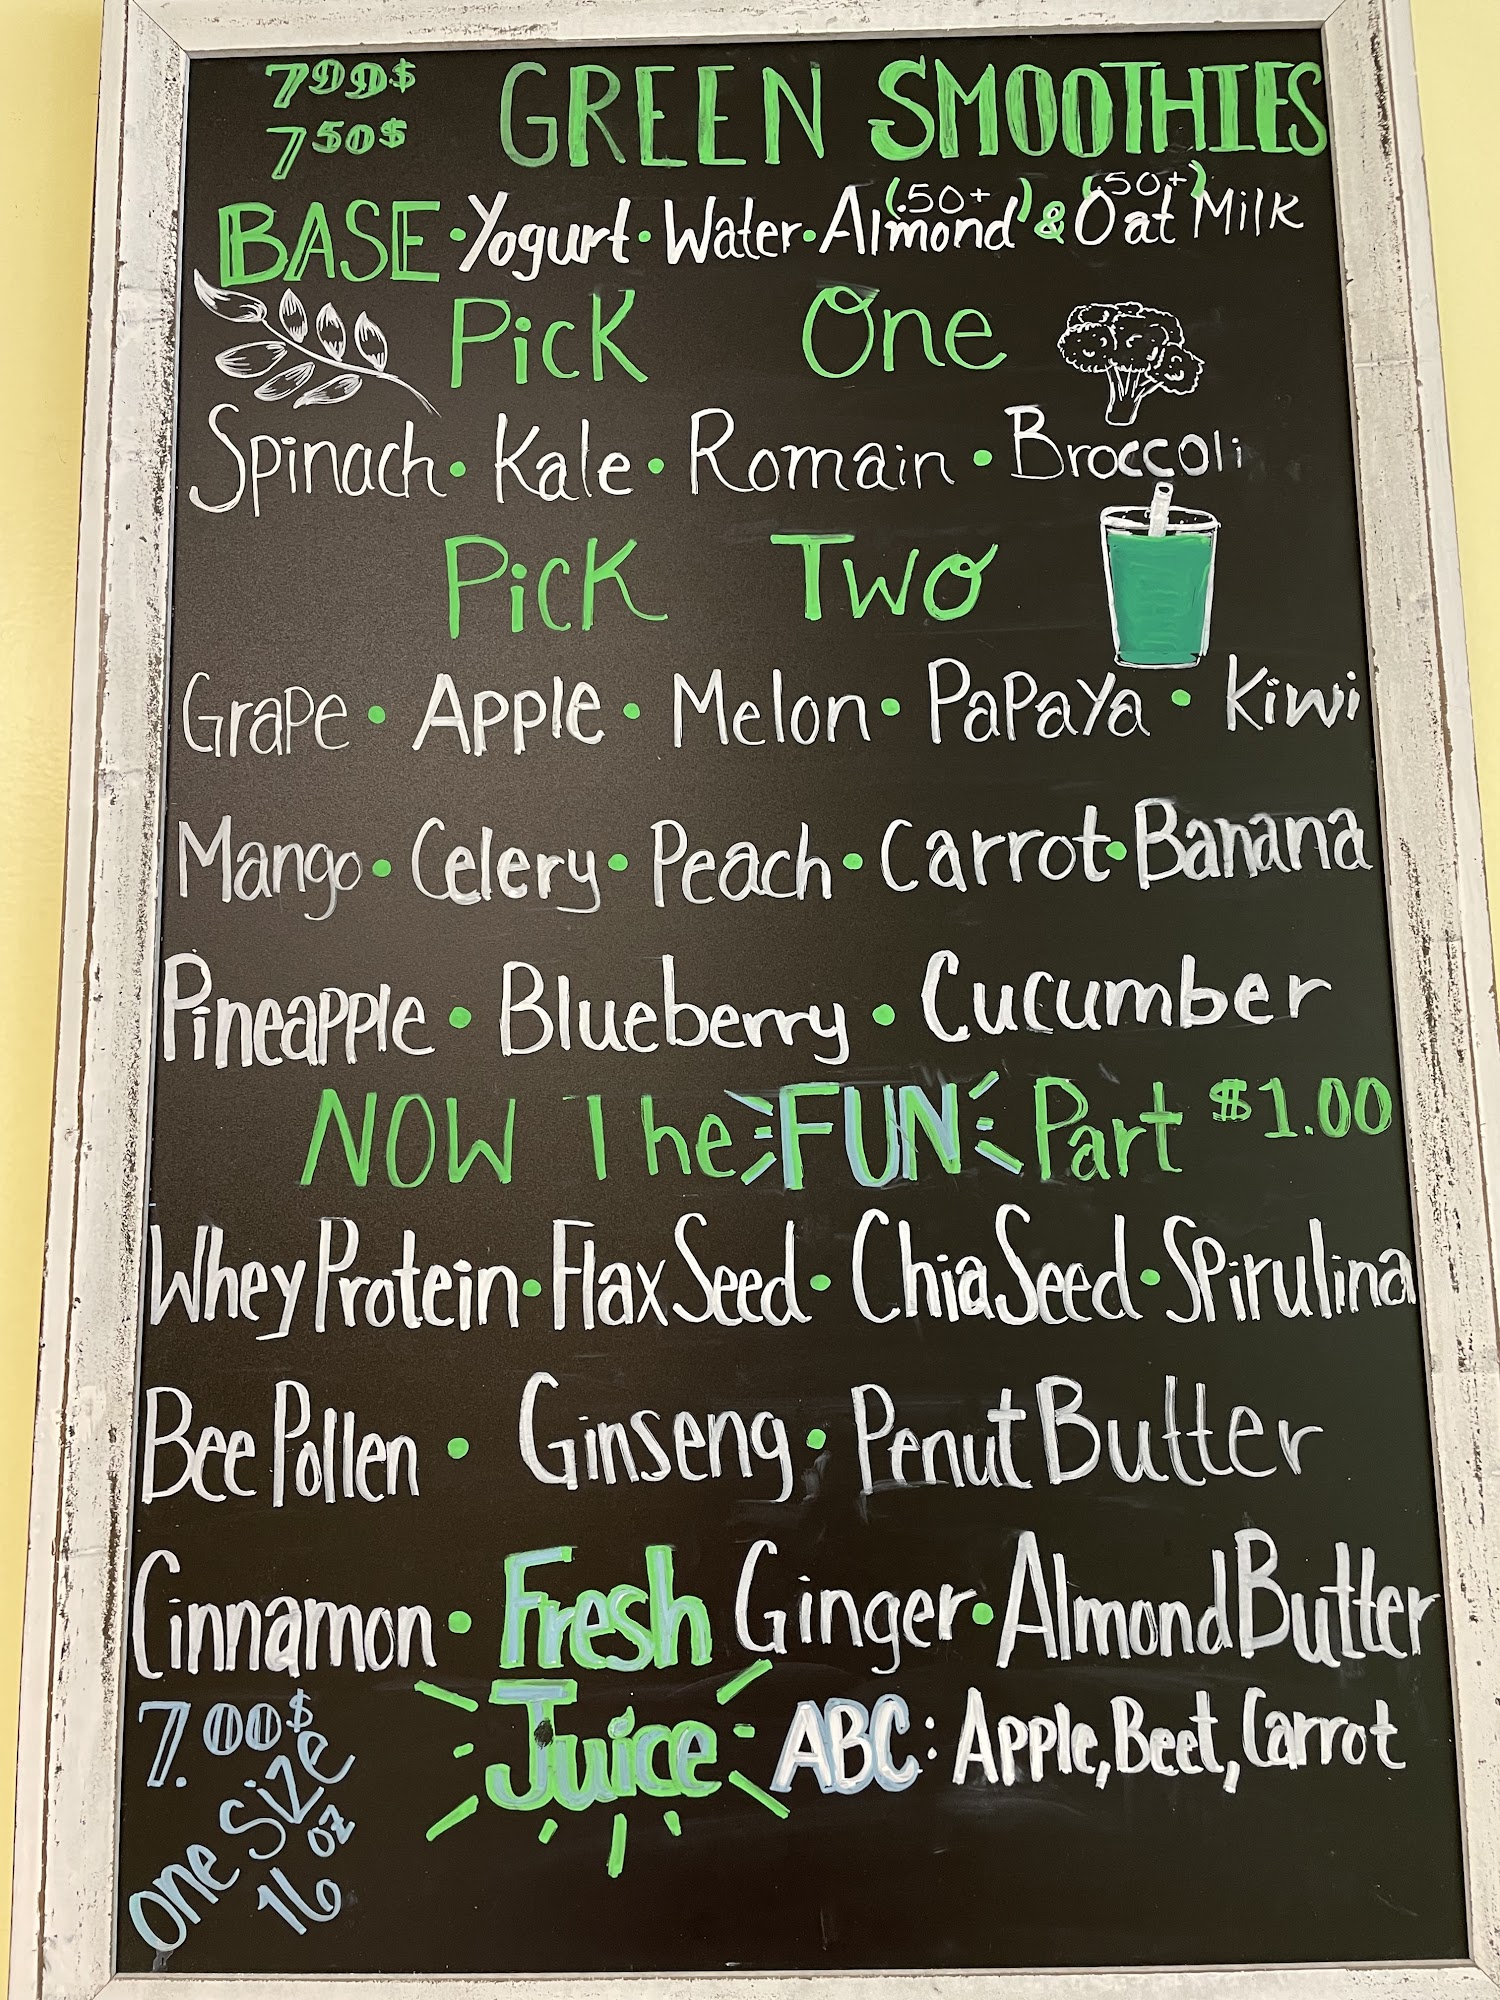 7.99$ GREEN SMOOTHIES
7.50$
BASE • Yogurt • Water • Almond (.50+) & Oat (.50+) Milk
Pick One
Spinach • Kale • Romain • Broccoli
Pick Two
Grape • Apple • Melon • Papaya • Kiwi
Mango • Celery • Peach • Carrot • Banana
Pineapple • Blueberry • Cucumber
NOW The FUN Part $1.00
Whey Protein • Flax Seed • Chia Seed • Spirulina
Bee Pollen • Ginseng • Penut Butter
Cinnamon • Fresh Ginger • Almond Butter
7.00$ Juice ABC: Apple, Beet, Carrot
one Size
16 oz